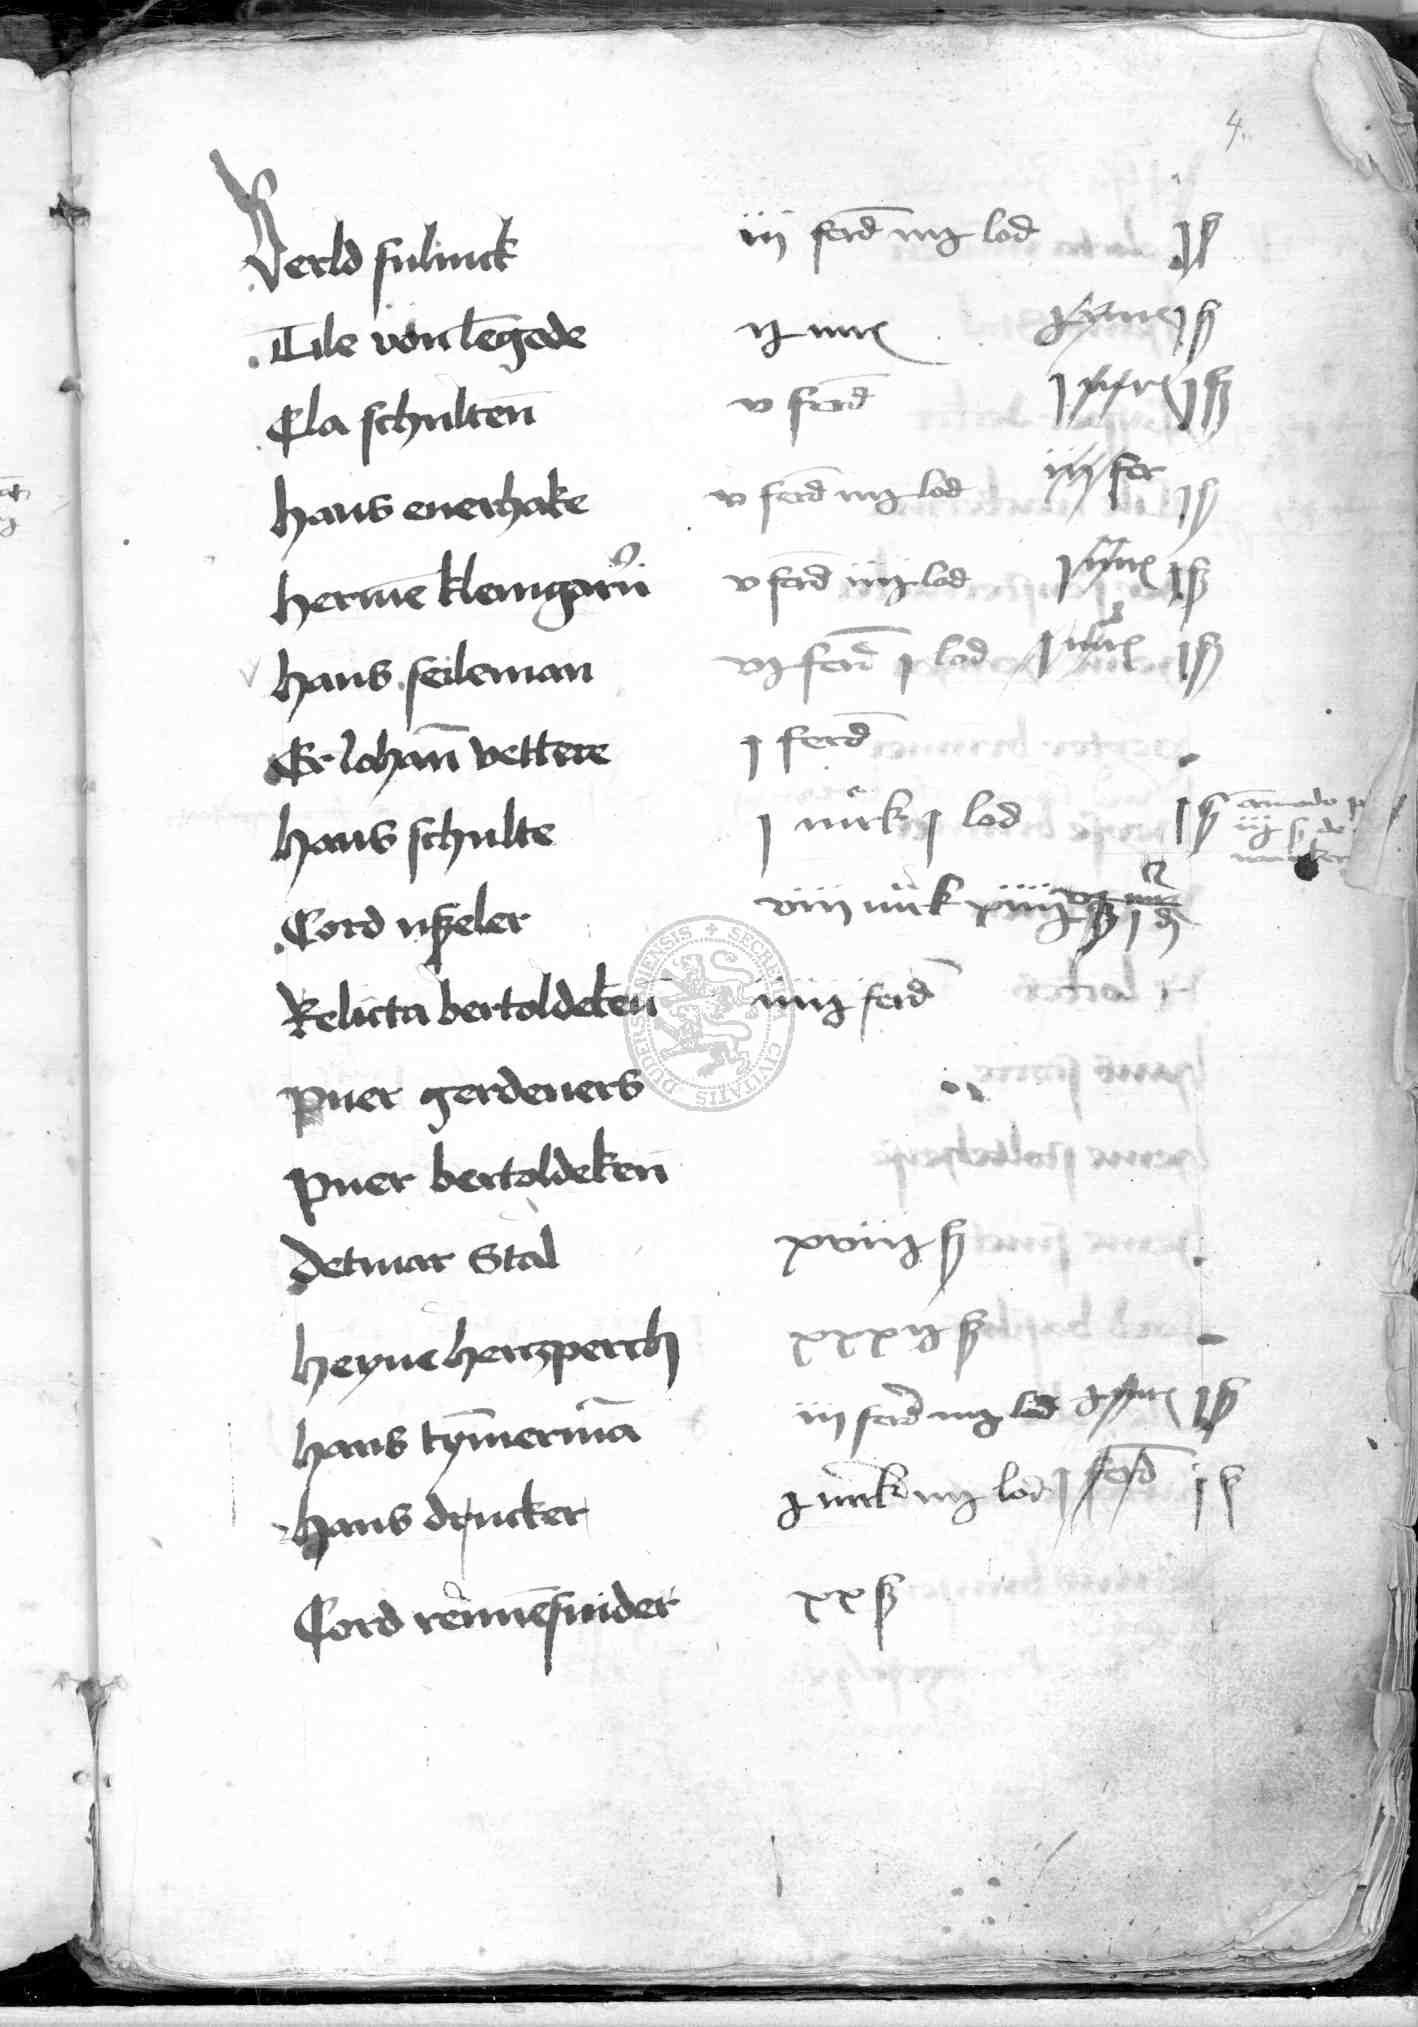 4
Verld fulinck iij ferd iiij lod j ß
Tile von lengede ij mrc j ß
Cla schulten v ferd j mrc j ß
hans enerhake v ferd iiij lod iij fer j ß
hermen klemgarn v ferd iiij lod j mrc j ß
hans seileman vj ferd j lod j mrc j ß
Er Johan vettere j ferd
hans schulte j mrk j lod j ß
Cord upeler viij mrk xiiij ß j d
Relicta bertoldeken iiij ferd
puer gerdeners
puer bertoldeken
detmar Stal xviij ß
heyne hertzperch xxxij ß
hans tymmerman iij ferd iiij lod j ß
hans drucker j mrk iiij lod j ferd j ß
Cord remensnider xx ß
SECRET CIVITATIS DUDERSTADENSIS